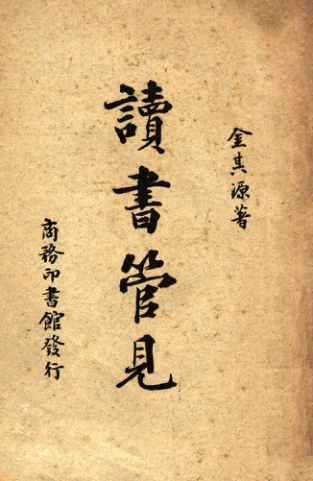 金其源著
讀書管見
商務印書館發行